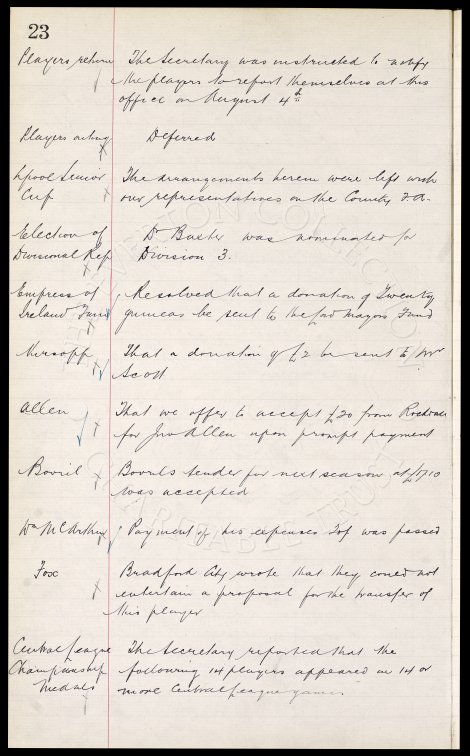 23
Players return The Secretary was instructed to notify
the players to report themselves at this
office on August 4th
Players outing Deferred
Lpool Senior The arrangements herein were left with
Cup our representatives on the County F.A.
Election of Dr Baxter was nominated for
Divisional Rep Division 3.
Empress of Resolved that a donation of Twenty
Ireland Fund guineas be sent to the Lord Mayors Fund
That a donation of £2 be sent to Mr
Scott
Allen That we offer to accept £20 from Rochdale
for Jno Allen upon prompt payment
Bovril Bovrils tender for next season at
was accepted
Wm McArthur Payment of his expenses was passed
Fox Bradford City wrote that they could not
entertain a proposal for the transfer of
this player
Central League The Secretary reported that the
Championship following 14 players appeared in 14 or
Medals more Central League games